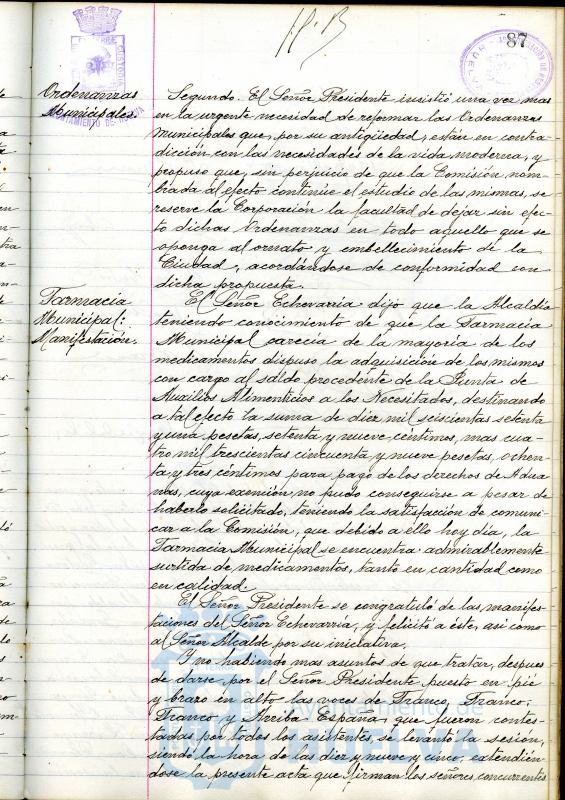 87
Ordenanzas
Municipales.
AYUNTAMIENTO DE HUELVA
Segundo. El Señor Presidente insistió una vez mas
en la urgente necesidad de reformar las Ordenanzas
Municipales que, por su antigüedad, están en contra-
dicción con las necesidades de la vida moderna, y
propuso que, sin perjuicio de que la Comisión nom-
brada al efecto continúe el estudio de las mismas, se
reserve la Corporación la facultad de dejar sin efec-
to dichas Ordenanzas en todo aquello que se
oponga al ornato y embellecimiento de la
Ciudad, acordándose de conformidad con
dicha propuesta.
Farmacia
Municipal:
Manifestación.
El Señor Echevarria dijo que la Alcaldía
teniendo conocimiento de que la Farmacia
Municipal carecía de la mayoría de los
medicamentos dispuso la adquisición de los mismos
con cargo al saldo procedente de la Junta de
Auxilios Alimenticios a los Necesitados, destinando
a tal efecto la suma de diez mil seiscientas setenta
y una pesetas, setenta y nueve céntimos, mas cua-
tro mil trescientas cincuenta y nueve pesetas, ochen-
ta y tres céntimos para pago de los derechos de Adua-
nas, cuya exención, no pudo conseguirse a pesar de
haberlo solicitado, teniendo la satisfacción de comuni-
car a la Comisión, que debido a éllo hoy día, la
Farmacia Municipal se encuentra admirablemente
surtida de medicamentos, tanto en cantidad como
en calidad.
El Señor Presidente se congratuló de las manifes-
taciones del Señor Echevarria, y felicitó a éste, así como
al Señor Alcalde por su iniciativa.
Y no habiendo mas asuntos de que tratar, despues
de darse, por el Señor Presidente puesto en pié
y brazo en alto, las voces de Franco, Franco,
Franco y Arriba España, que fueron contes-
tadas por todos los asistentes, se levantó la sesión,
siendo la hora de las diez y nueve y cinco, extendién-
dose la presente acta que firman los señores concurrentes
Ayuntamiento de
HUELVA